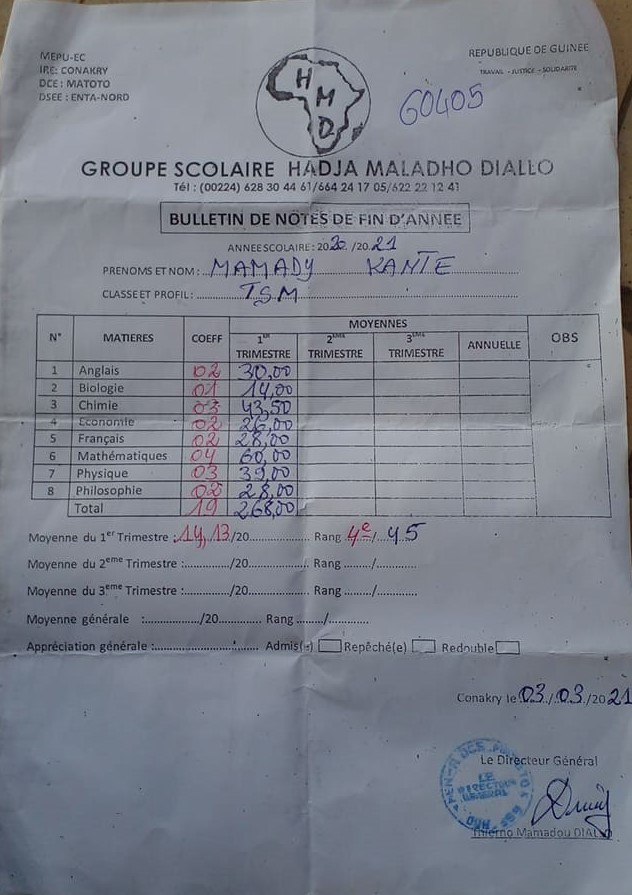 MEPU-EC
IRE: CONAKRY
DCE : MATOTO
DSEE : ENTA-NORD
REPUBLIQUE DE GUINEE
TRAVAIL - JUSTICE - SOLIDARITE
HMD
60405
GROUPE SCOLAIRE HADJA MALADHO DIALLO
Tél : (00224) 628 30 44 61/664 24 17 05/622 22 12 41
BULLETIN DE NOTES DE FIN D'ANNEE
ANNEE SCOLAIRE : 2020 /2021
PRENOMS ET NOM : MAMADY KANTE
CLASSE ET PROFIL : TSM
N° MATIERES COEFF MOYENNES OBS
1ER TRIMESTRE 2EME TRIMESTRE 3EME TRIMESTRE ANNUELLE
1 Anglais 02 30,00
2 Biologie 01 14,00
3 Chimie 03 43,50
4 Economie 02 26,00
5 Français 02 28,00
6 Mathématiques 04 60,00
7 Physique 03 39,00
8 Philosophie 02 28,00
Total 19 268,00
Moyenne du 1er Trimestre : 14,13/20 Rang 4e/45
Moyenne du 2eme Trimestre :....../20 Rang ....../......
Moyenne du 3eme Trimestre :....../20 Rang ....../......
Moyenne générale :....../20 Rang ....../......
Appréciation générale : Admis(e) Repêché(e) Redouble
Conakry le 03/03/2021
Le Directeur Général
LE DIRECTEUR GENERAL
Thierno Mamadou DIALLO